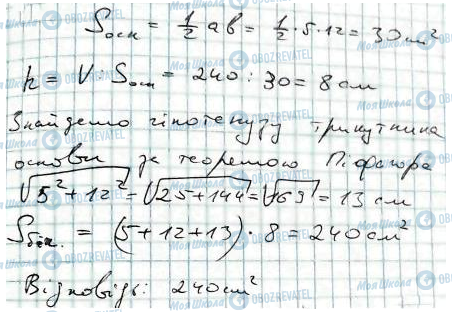 Sосн = 1/2 ab = 1/2 · 5 · 12 = 30 см²
h = V : Sосн = 240 : 30 = 8 см
Знайдемо гіпотенузу трикутника
основи за теоремою Піфагора
√5² + 12² = √25 + 144 = √169 = 13 см
Sбіч. = (5 + 12 + 13) · 8 = 240 см²
Відповідь: 240 см²